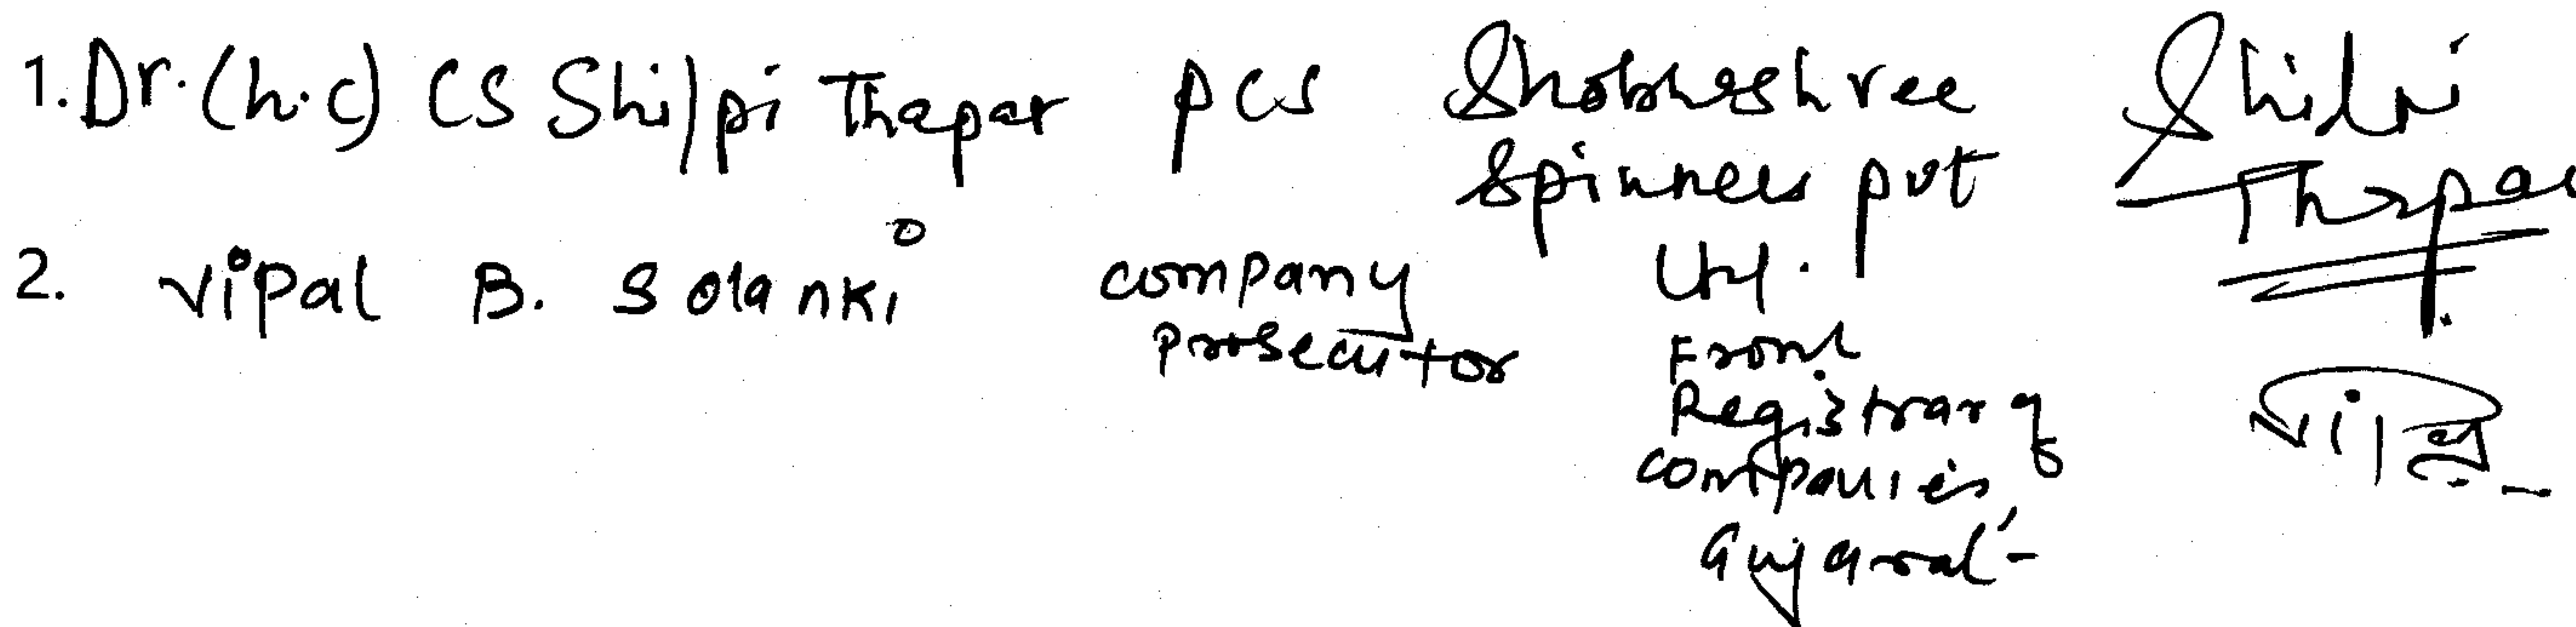 1. Dr. (h.c) CS Shilpi Thapar PCS Shobhashree Shilpi
Spinners pvt Thapar
2. Vipal B. Solanki company Ltd.
Prosecutor From
Registrar of
companies,
Gujarat-